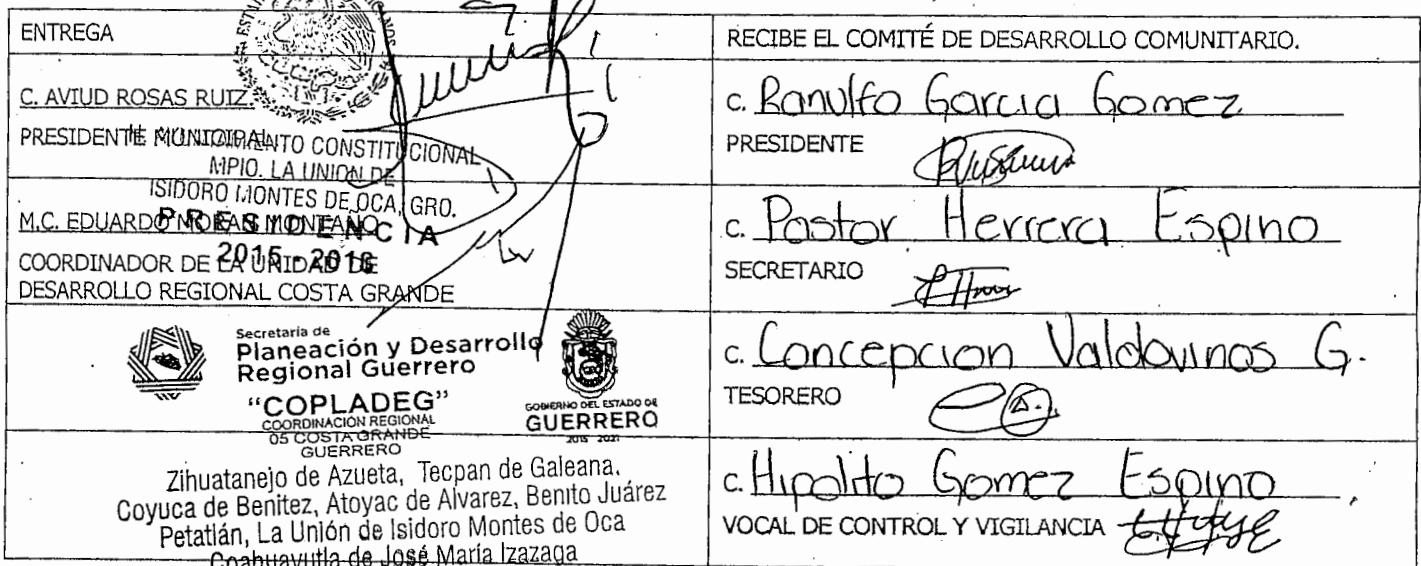 ENTREGA
RECIBE EL COMITÉ DE DESARROLLO COMUNITARIO.
C. AVIUD ROSAS RUIZ.
PRESIDENTE MUNICIPAL
H. AYUNTAMIENTO CONSTITUCIONAL
MPIO. LA UNION DE
ISIDORO MONTES DE OCA, GRO.
PRESIDENCIA
2015 - 2018
M.C. EDUARDO MORAN MONTAÑO
COORDINADOR DE LA UNIDAD DE
DESARROLLO REGIONAL COSTA GRANDE
Secretaría de
Planeación y Desarrollo
Regional Guerrero
"COPLADEG"
COORDINACIÓN REGIONAL
05 COSTA GRANDE
GUERRERO
GOBIERNO DEL ESTADO DE
GUERRERO
2015 2021
Zihuatanejo de Azueta, Tecpan de Galeana.
Coyuca de Benitez, Atoyac de Alvarez, Benito Juárez
Petatlán, La Unión de Isidoro Montes de Oca
Coahuayutla de José María Izazaga
C. Ranulfo Garcia Gomez
PRESIDENTE
C. Pastor Herrera Espino
SECRETARIO
C. Concepcion Valdovinos G.
TESORERO
C. Hipolito Gomez Espino
VOCAL DE CONTROL Y VIGILANCIA